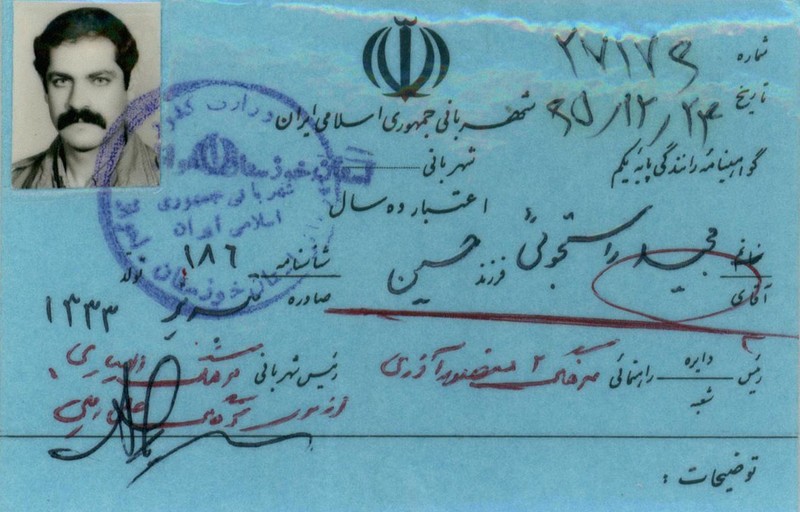 شماره ۲۷۱۷۶
شهربانی جمهوری اسلامی ایران
تاریخ ۶۵/۱۲/۲۳
شهربانی
گواهینامه رانندگی پایه یکم
اعتبار ده سال
خانم آقای مجید راستجوئی فرزند حسین
شناسنامه ۱۸۶ تولد
صادره ۱۳۳۳
رئیس دایره شعبه راهنمائی سرهنگ ۲
رئیس شهربانی
توضیحات :
وزارت کشور
شهربانی جمهوری
اسلامی ایران